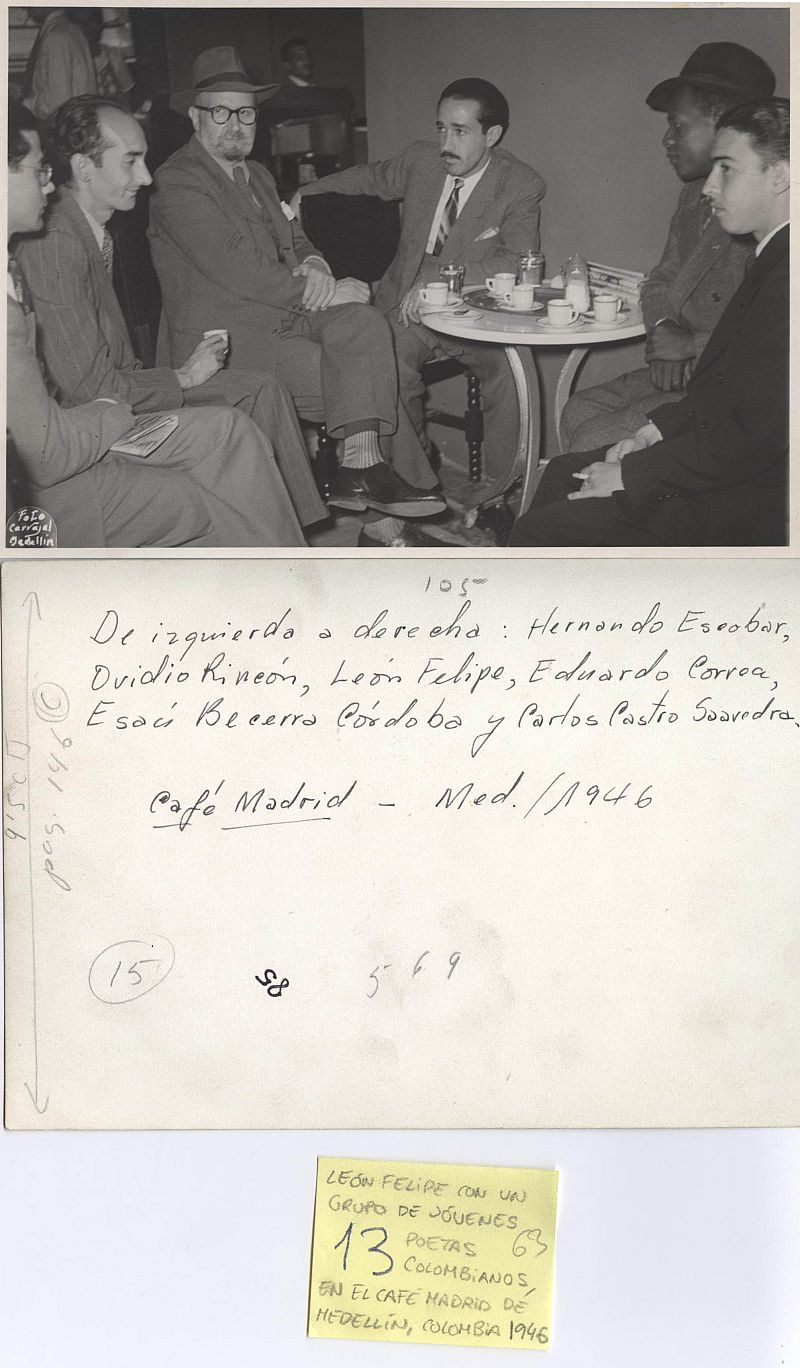 Foto
Carvajal
Medellín
105
De izquierda a derecha : Hernando Escobar,
Ovidio Rincón, León Felipe, Eduardo Correa,
Esaú Becerra Córdoba y Carlos Castro Saavedra.
Café Madrid - Med. / 1946
pag. 146 C
15
85
569
LEÓN FELIPE CON UN
GRUPO DE JÓVENES
13 POETAS 63
COLOMBIANOS,
EN EL CAFÉ MADRID DE
MEDELLÍN, COLOMBIA 1946